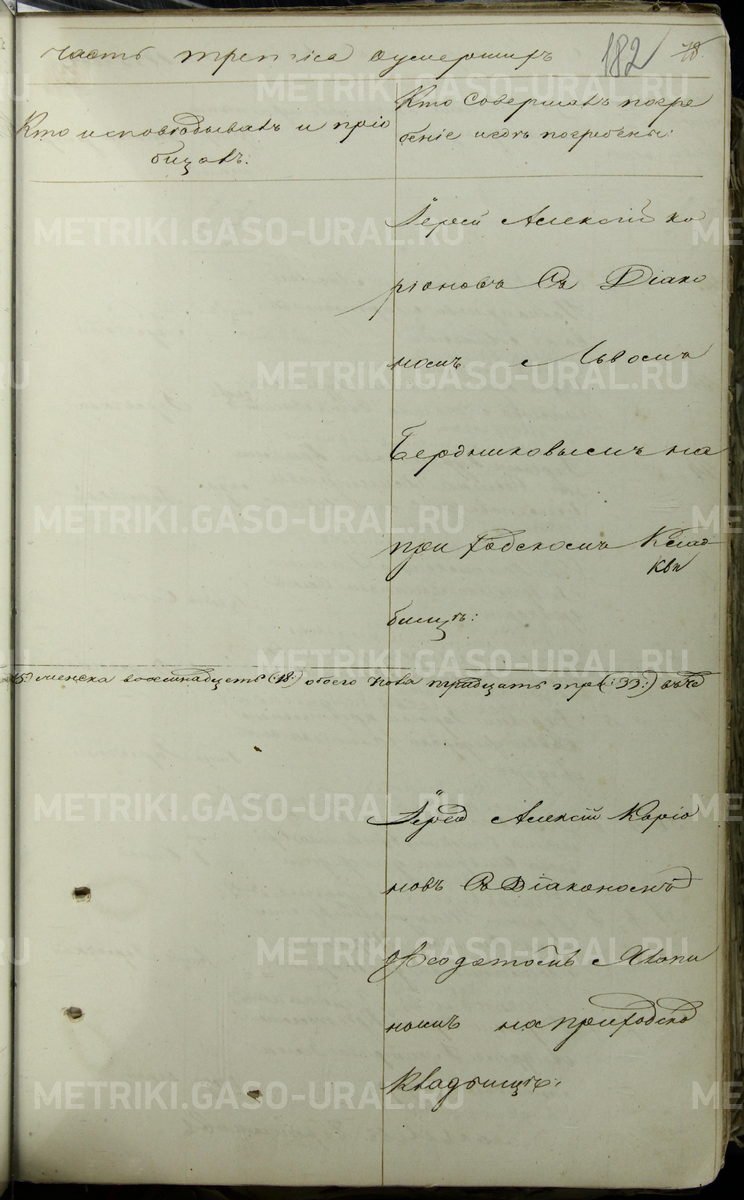 часть третiя оумершихъ 182
Кто исповѣдывалъ и прiо
бщалъ:
Кто Совершалъ погре
бенiе игдѣ погребены:
Iерей Алексiй Ка
рiоновъ Съ Дiако
номъ Львомъ
Бердниковымъ на
приходскомъ Клад
бищѣ:
женска восемнадцеть (:18:) обоего пола тридцать три (:33:)
Iерей Алексiй Карiо
новъ Съ Дiакономъ
Ѳеодотомъ
номъ на приходско
Кладбищѣ:
METRIKI.GASO-URAL.RU